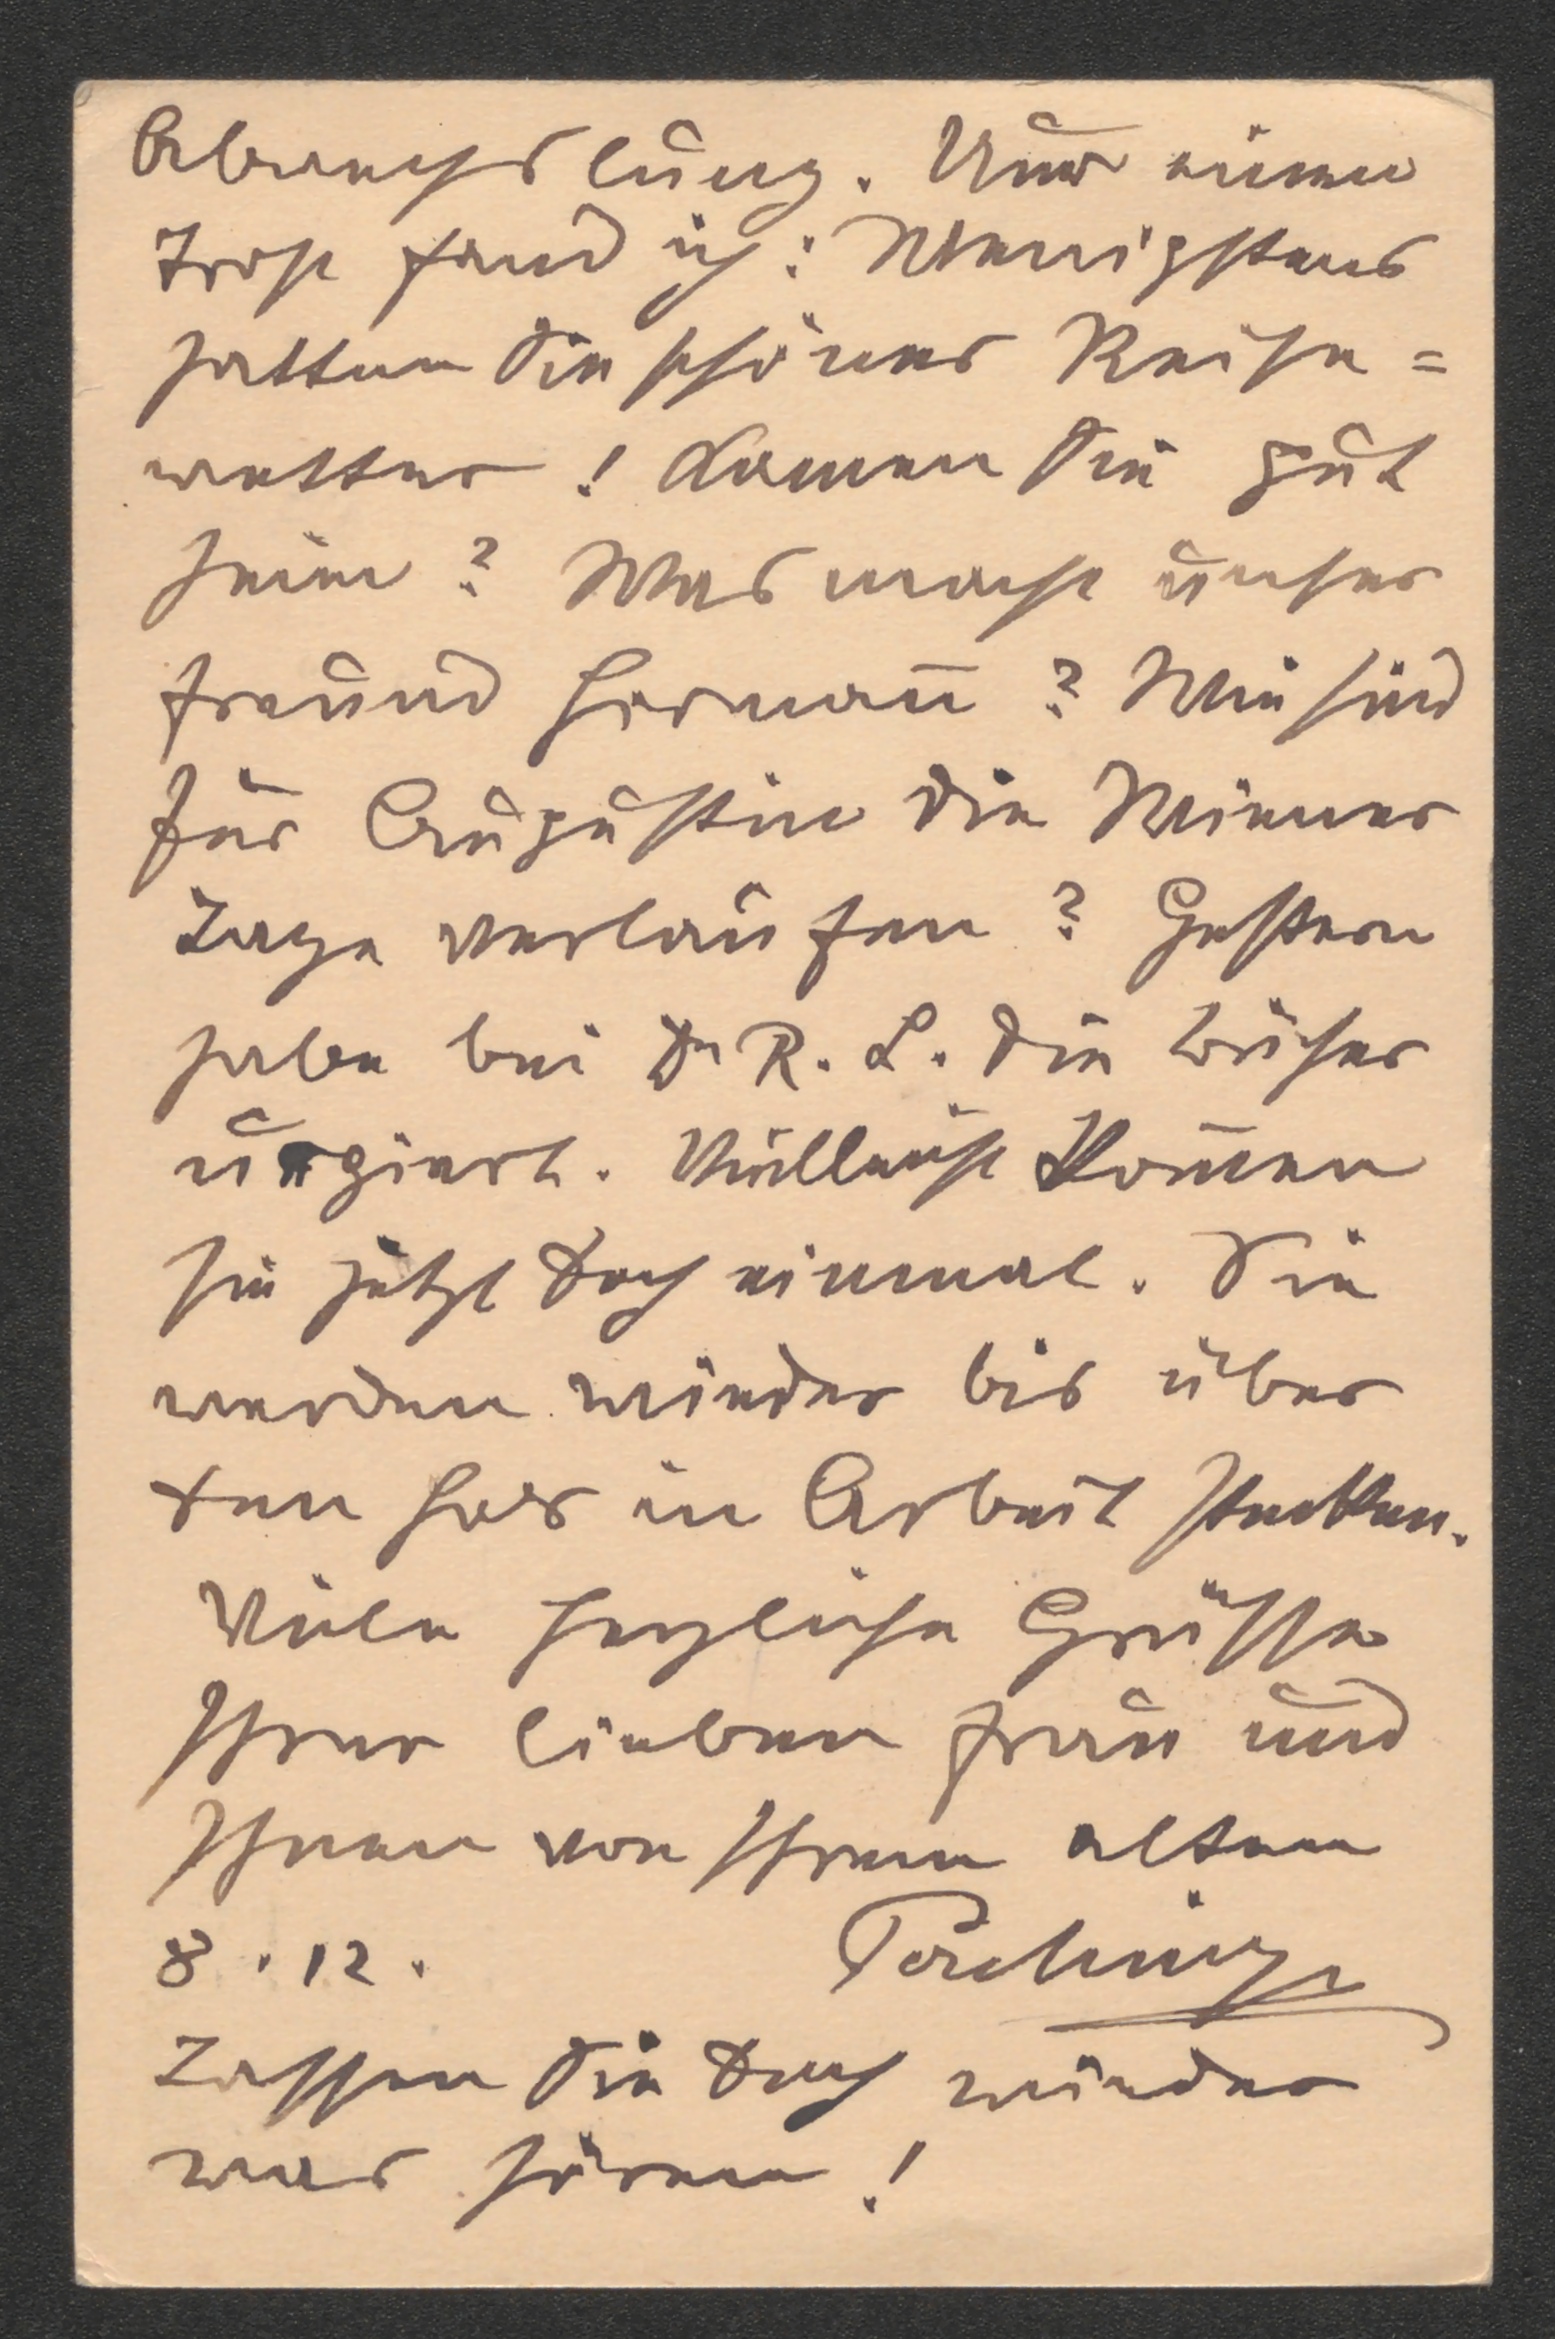 Abwechslung. Nur einen
Trost fand ich: Wenigstens
hatten Sie schönes Reise=
wetter! Kamen Sie gut
heim? Was macht unser
Freund Hermann̄? Wie sind
für Augustin die Wiener
Tage verlaufen? Gestern
habe bei Dr R. L. die Bücher
urgiert. Vielleicht kom̄en
sie jetzt doch einmal. Sie
werden wieder bis über
den Hals in Arbeit stecken.
Viele herzliche Grüsse
Ihrer lieben Frau und
Ihnen von Ihrem alten
8.12.
Lassen Sie doch wieder
was hören!